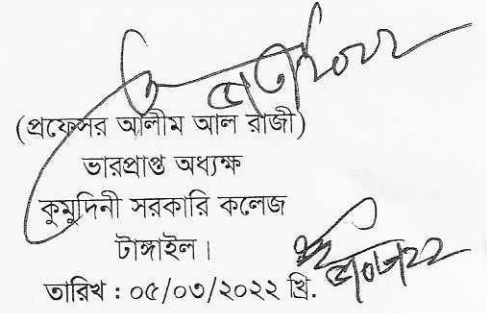 (প্রফেসর আলীম আল রাজী)
ভারপ্রাপ্ত অধ্যক্ষ
কুমুদিনী সরকারি কলেজ
টাঙ্গাইল।
তারিখ : ০৫/০৩/২০২২ খ্রি.